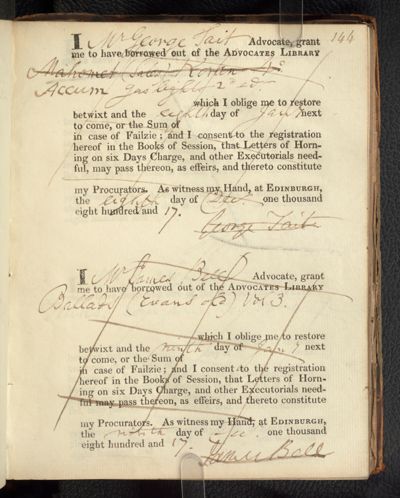 144
I Mr George Tait Advocate, grant
me to have borrowed out of the ADVOCATES LIBRARY
Mahomet (Sales) Koran 4o
Accum Gas Light 2d ed.
which I oblige me to restore
betwixt and the eighth day of Jany next
to come, or the Sum of
in case of Failzie; and I consent to the registration
hereof in the Books of Session, that Letters of Horn-
ing on six Days Charge, and other Executorials need-
ful, may pass thereon, as effeirs, and thereto constitute
my Procurators. As witness my Hand, at EDINBURGH,
the eighth day of Dec. one thousand
eight hundred and 17.
George Tait
I Mr James Bell Advocate, grant
me to have borrowed out of the ADVOCATES LIBRARY
Ballads (Evans of) 1813.
which I oblige me to restore
betwixt and the ninth day of Jany next
to come, or the Sum of
in case of Failzie; and I consent to the registration
hereof in the Books of Session, that Letters of Horn-
ing on six Days Charge, and other Executorials need-
ful may pass thereon, as effeirs, and thereto constitute
my Procurators. As witness my Hand, at EDINBURGH,
the ninth day of Dec. one thousand
eight hundred and 17.
James Bell